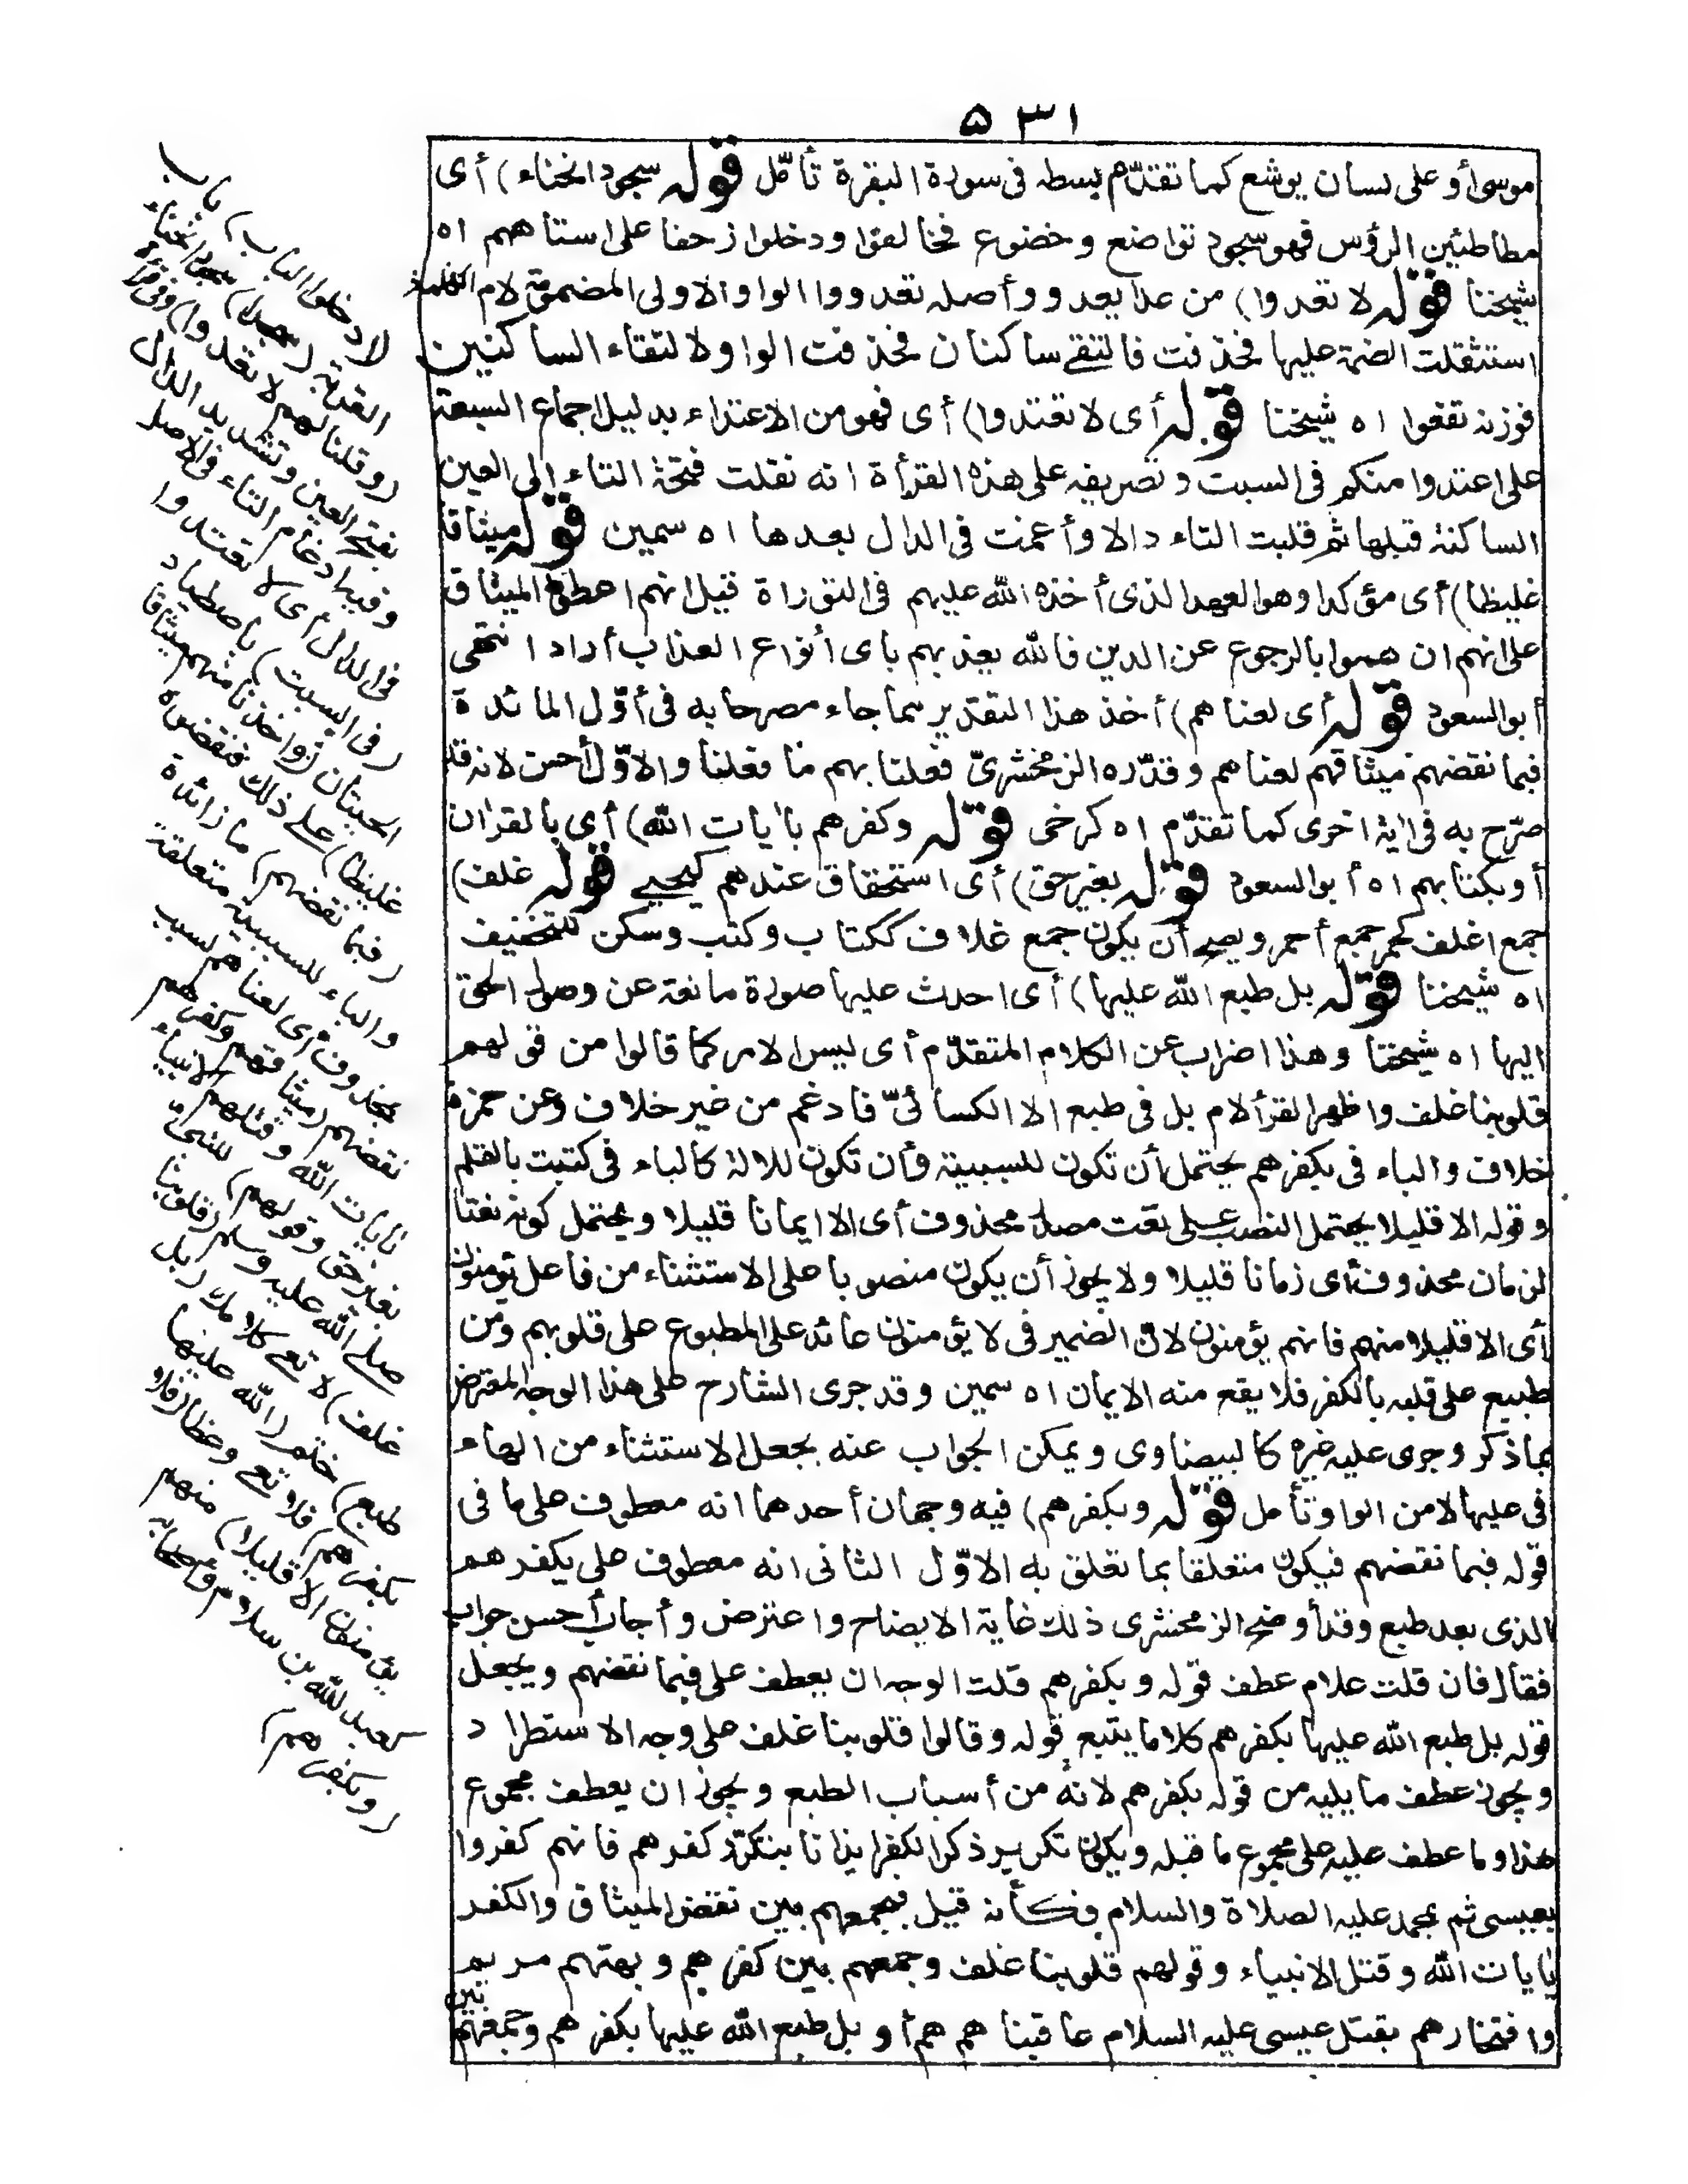 ٥٣١
موسى أو على لسان يوشع كما تقدّم بسطه فى سورة البقرة تأمّل قوله سجود انحناء) أى
مطاطئين الرؤس فهو سجود تواضع وخضوع فخالفوا ودخلوا زحفا على استاههم اه
شيخنا قوله لا تعدوا) من عدا يعدو وأصله تعدووا الواو الاولى المضمومة لام الكلمة
استثقلت الضمة عليها فحذفت فالتقى ساكنان فحذفت الواو لالتقاء الساكنين
فوزنه تفعوا اه شيخنا قوله أى لا تعتدوا) أى فهو من الاعتداء بدليل اجماع السبعة
على اعتدوا منكم فى السبت وتصريفه على هذه القرأة انه نقلت فتحة التاء الى العين
الساكنة قبلها ثم قلبت التاء دالا وأدغمت فى الدال بعدها اه سمين قوله ميثاقا
غليظا) أى مؤكدا وهو العهد الذى أخذه الله عليهم فى التوراة قيل انهم اعطوا الميثاق
على انهم ان هموا بالرجوع عن الدين فالله يعذبهم باى أنواع العذاب أراد انتهى
أبو السعود قوله أى لعناهم) أخذ هذا التقدير مما جاء مصرحا به فى أوّل المائدة
فبما نقضهم ميثاقهم لعناهم وقدّره الزمخشرىّ فعلنا بهم ما فعلنا والاوّل أحسن لانه قد
صرّح به فى اٰية اخرى كما تقدّم اه كرخى قوله وكفرهم باٰيات الله) أى بالقراٰن
أو بكتابهم اه أبو السعود قوله بغير حق) أى استحقاق عندهم كيحيى قوله غلف)
جمع اغلف كحمر جمع أحمر ويصح أن يكون جمع غلاف ككتاب وكتب وسكن للتخفيف
اه شيخنا قوله بل طبع الله عليها) أى احدث عليها صورة مانعة عن وصول الحق
اليها اه شيخنا وهذا اضراب عن الكلام المتقدّم أى ليس الامر كما قالوا من قولهم
قلوبنا غلف واظهر القرأ لام بل فى طبع الا الكسائىّ فادغم من غير خلاف وعن حمزة
خلاف والباء فى بكفرهم يحتمل أن تكون للسببية وأن تكون للالة كالباء فى كتبت بالقلم
وقوله الا قليلا يحتمل النصب على نعت مصدر محذوف أى الا ايمانا قليلا ويحتمل كونه نعتا
لزمان محذوف أى زمانا قليلا ولا يجوز أن يكون منصوبا على الاستثناء من فاعل يؤمنون
أى الا قليلا منهم فانهم يؤمنون لانّ الضمير فى لا يؤمنون عائد على المطبوع على قلوبهم ومن
طبيع على قلبه بالكفر فلا يقع منه الايمان اه سمين وقد جرى الشارح على هذا الوجه المعترض
بما ذكر وجرى عليه غيره كالبيضاوى ويمكن الجواب عنه بجعل الاستثناء من الهاء
فى عليها لا من الواو تأمل قوله وبكفرهم) فيه وجهان أحدهما انه معطوف على ما فى
قوله فبما نقضهم فيكون متعلقا بما تعلق به الاوّل الثانى انه معطوف على بكفرهم
الذى بعد طبع وقد أوضح الزمخشرى ذلك غاية الايضاح واعترض وأجاب أحسن جواب
فقال فان قلت علام عطف قوله وبكفرهم قلت الوجه ان يعطف على فبما نقضهم ويجعل
قوله بل طبع الله عليها بكفرهم كلاما يتبع قوله وقالوا قلوبنا غلف على وجه الاستطراد
ويجوز عطف ما يليه من قوله بكفرهم لانه من أسباب الطبع ويجوز ان يعطف مجموع
هذا وما عطف عليه على مجموع ما قبله ويكون تكرير ذكر الكفر ايذانا بتكرّر كفرهم فانهم كفروا
بعيسى ثم بمحمد عليه الصلاة والسلام فكأنه قيل فبجمعهم بين نقض الميثاق والكفر
باٰيات الله وقتل الانبياء وقولهم قلوبنا غلف وجمعهم بين كفرهم وبهتهم مريم
وافتخارهم بقتل عيسى عليه السلام عاقبناهم هم أو بل طبع الله عليها بكفرهم وجمعهم بين
لا دخلوا الباب) باب
القرية (سجدا) سجود انحناء
(وقلنا لهم لا تعدوا) وفى قرأة
بفتح العين وتشديد الدال
وفيه ادغام التاء فى الاصل
فى الدال أى لا تعتدوا
(فى السبت) باصطياد
الحيتان (وأخذنا منهم ميثاقا
غليظا) على ذلك فنقضوه
(فبما نقضهم) ما زائدة
والباء للسببية متعلقة
بمحذوف أى لعناهم بسبب
نقضهم (ميثاقهم وكفرهم
باٰيات الله وقتلهم الانبياء
بغير حق وقولهم) للنبىّ
صلى الله عليه وسلم (قلوبنا
غلف) لا تعى كلامك (بل
طبع) ختم (الله عليها
بكفرهم) فلا تعى وعظا (فلا
يؤمنون الا قليلا) منهم
كعبد الله بن سلام وأصحابه
(وبكفرهم)